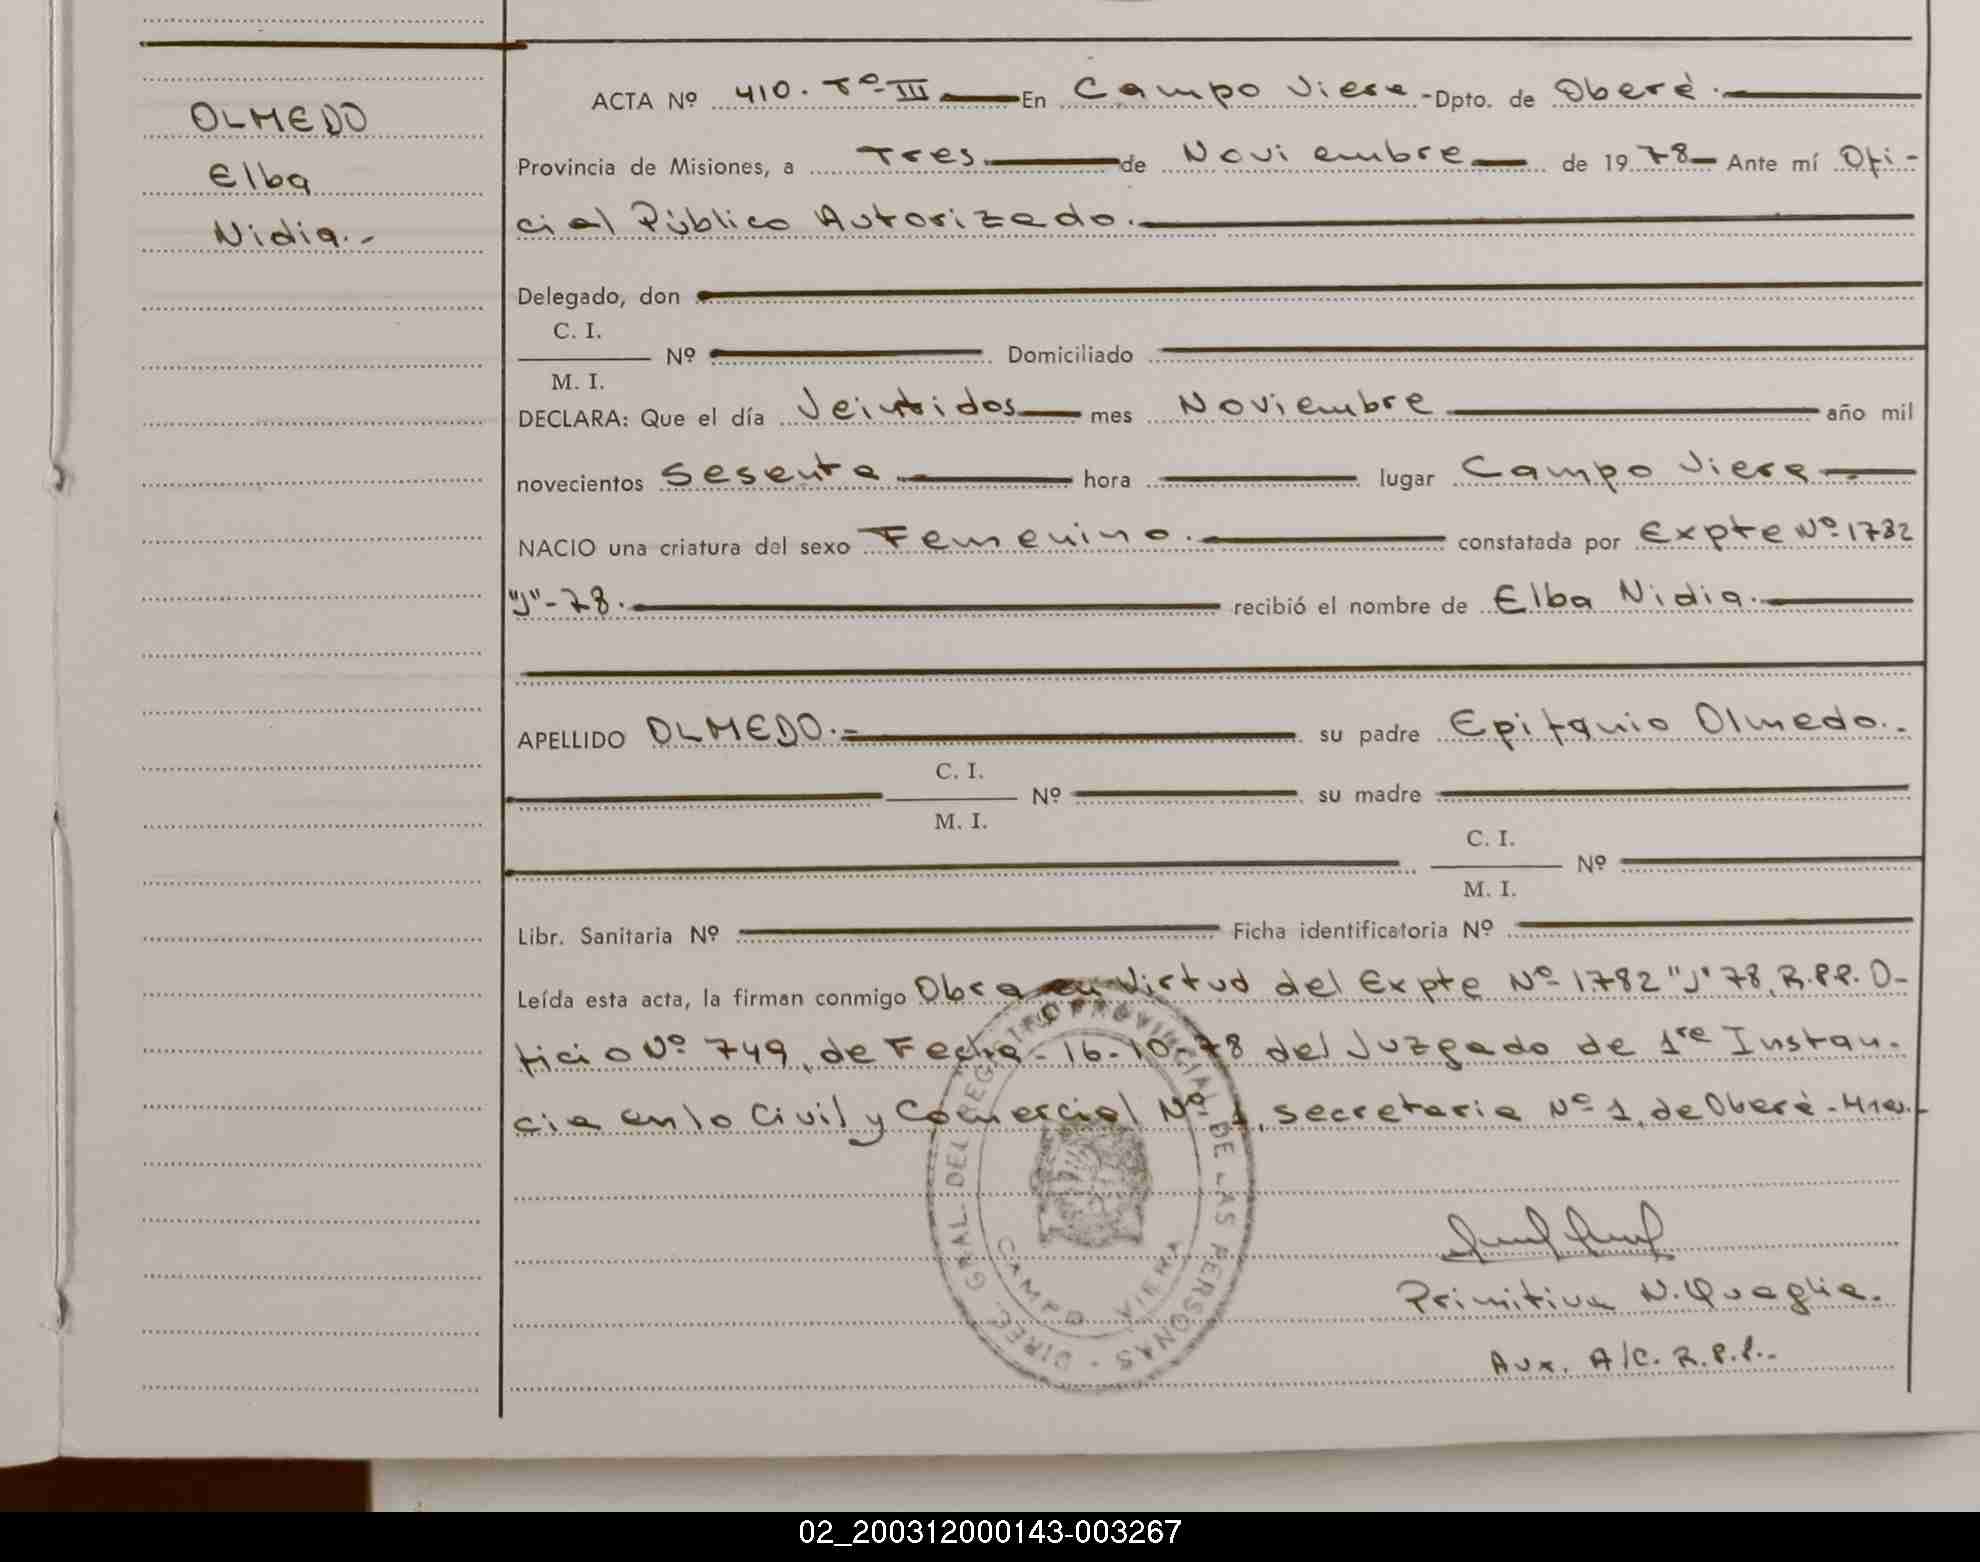 OLMEDO
Elba
Nidia.-
ACTA Nº 410. Tº III En Campo Viera - Dpto. de Oberá.
Provincia de Misiones, a Tres de Noviembre de 1978 Ante mí Ofi-
cial Público Autorizado.
Delegado, don
C. I.
Nº Domiciliado
M. I.
DECLARA: Que el día Veintidos mes Noviembre año mil
novecientos Sesenta hora lugar Campo Viera
NACIO una criatura del sexo Femenino. constatada por Expte Nº 1782
"J"-78. recibió el nombre de Elba Nidia.
APELLIDO OLMEDO.- su padre Epifanio Olmedo.-
C. I.
Nº su madre
M. I.
C. I.
Nº
M. I.
Libr. Sanitaria Nº Ficha identificatoria Nº
Leída esta acta, la firman conmigo Obra en Virtud del Expte Nº 1782 "J" 78, R.P.P. O-
ficio Nº 749, de Fecha - 16-10-78 del Juzgado de 1ra Instan-
cia en lo Civil y Comercial Nº 1, secretaria Nº 1, de Oberá - Mnes.-
DIREC. GRAL. DEL REGISTRO PROVINCIAL DE LAS PERSONAS -
CAMPO VIERA
Primitiva N. Quaglia.
Aux. A/C. R.P.P.-
02_200312000143-003267